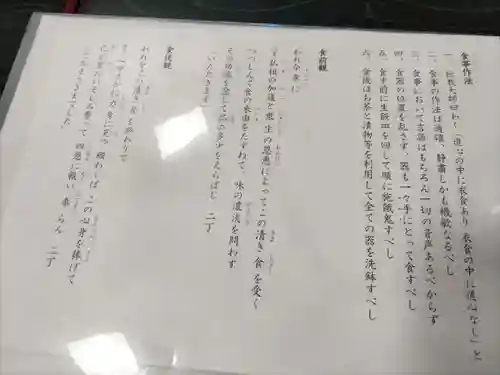 食事作法
一、伝教大師曰わく「道心の中に衣食あり 衣食の中に道心なし」と
二、食事の作法は適確、静粛しかも機敏なるべし
三、食事において言語はもちろん一切の音声あるべからず
四、食器の位置を乱さず、器も一々手にとって食すべし
五、食事前に生飯皿を回して順に施餓鬼すべし
六、食後はお茶と漬物等を利用して全ての器を洗鉢すべし
食前観
われ今幸に
仏祖の加護と衆生の恩恵によってこの清き食を受く
つつしんで食の来由をたずねて、味の濃淡を問わず
その功徳を念じて品の多少をえらばじ 二丁
いただきます
食後観
われ今この清き食を終わりて
心ゆたかに力身に充つ 願わくば この心身を捧げて
己が業にいそしみ 誓って 四恩に報い 奉らん 二丁
ごちそうさまでした